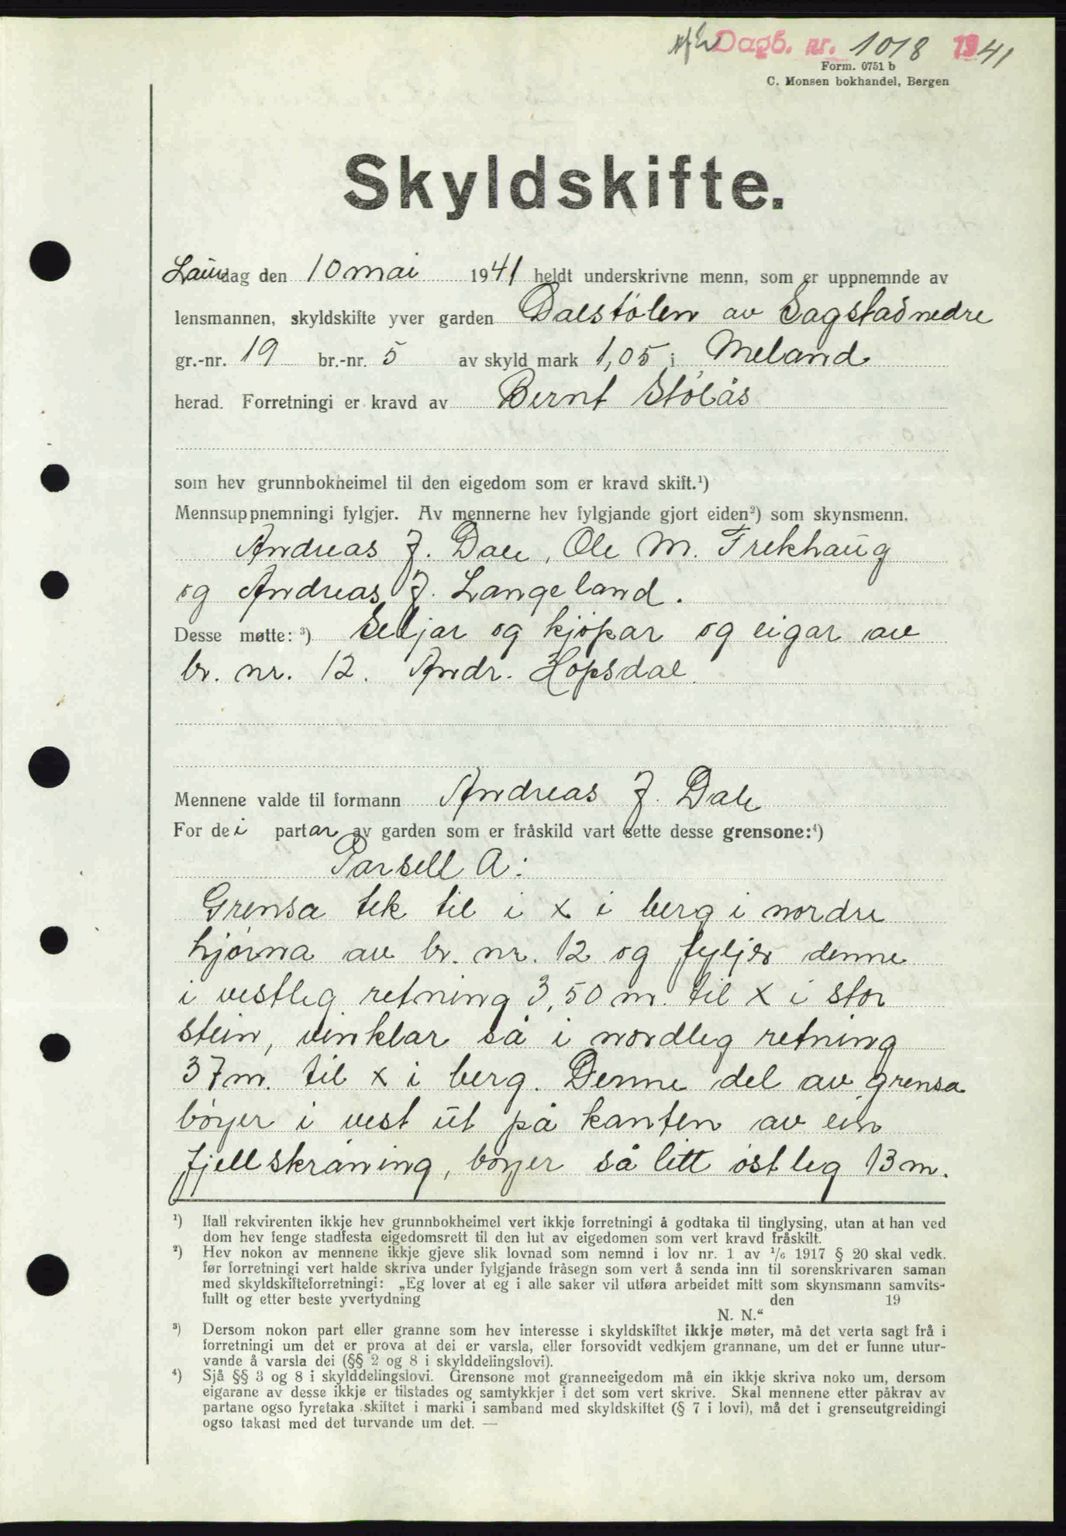 Dagb. nr. 1018 1941
Form. 0751 b
C. Monsen bokhandel, Bergen
Skyldskifte.
Laurdag den 10 mai 1941 heldt underskrivne menn, som er uppnemnde av
lensmannen, skyldskifte yver garden Dalstølen av Sagstad nedre
gr.-nr. 19 br.-nr. 5 av skyld mark 1,05 i Meland
herad. Forretningi er kravd av Bernt Stølås
som hev grunnbokheimel til den eigedom som er kravd skift.¹)
Mennsuppnemningi fylgjer. Av mennerne hev fylgjande gjort eiden²) som skynsmenn.
Andreas J. Dale, Ole M. Frekhaug
og Andreas J. Langeland.
Desse møtte:³) Seljar og kjøpar og eigar av
br. nr. 12. Andr. Hopsdal.
Mennene valde til formann Andreas J. Dale
For dei partar av garden som er fråskild vart sette desse grensone:⁴)
Parsell A:
Grensa tek til i x i berg i nordre
hjørna av br. nr. 12 og fyljer denne
i vestleg retning 3,50 m. til x i stor
stein, vinklar så i nordleg retning
37 m. til x i berg. Denne del av grensa
bøyer i vest ut på kanten av ein
fjellskråning, bøyer så litt østleg 13 m.
¹) Ifall rekvirenten ikkje hev grunnbokheimel vert ikkje forretningi å godtaka til tinglysing, utan at han ved
dom hev fenge stadfesta eigedomsrett til den lut av eigedomen som vert kravd fråskilt.
²) Hev nokon av mennene ikkje gjeve slik lovnad som nemnd i lov nr. 1 av ¹/₆ 1917 § 20 skal vedk.
før forretningi vert halde skriva under fylgjande fråsegn som vert å senda inn til sorenskrivaren saman
med skyldskifteforretningi: „Eg lover at eg i alle saker vil utføra arbeidet mitt som skynsmann samvits-
fullt og etter beste yvertydning den 19
N. N.“
³) Dersom nokon part eller granne som hev interesse i skyldskiftet ikkje møter, må det verta sagt frå i
forretningi um det er prova at dei er varsla, eller forsovidt vedkjem grannane, um det er funne utur-
vande å varsla dei (§§ 2 og 8 i skylddelingslovi).
⁴) Sjå §§ 3 og 8 i skylddelingslovi. Grensone mot granneeigedom må ein ikkje skriva noko um, dersom
eigarane av desse ikkje er tilstades og samtykkjer i det som vert skrive. Skal mennene etter påkrav av
partane ogso fyretaka skiftet i marki i samband med skyldskiftet (§ 7 i lovi), må det i grenseutgreidingi
ogso takast med det turvande um det. —